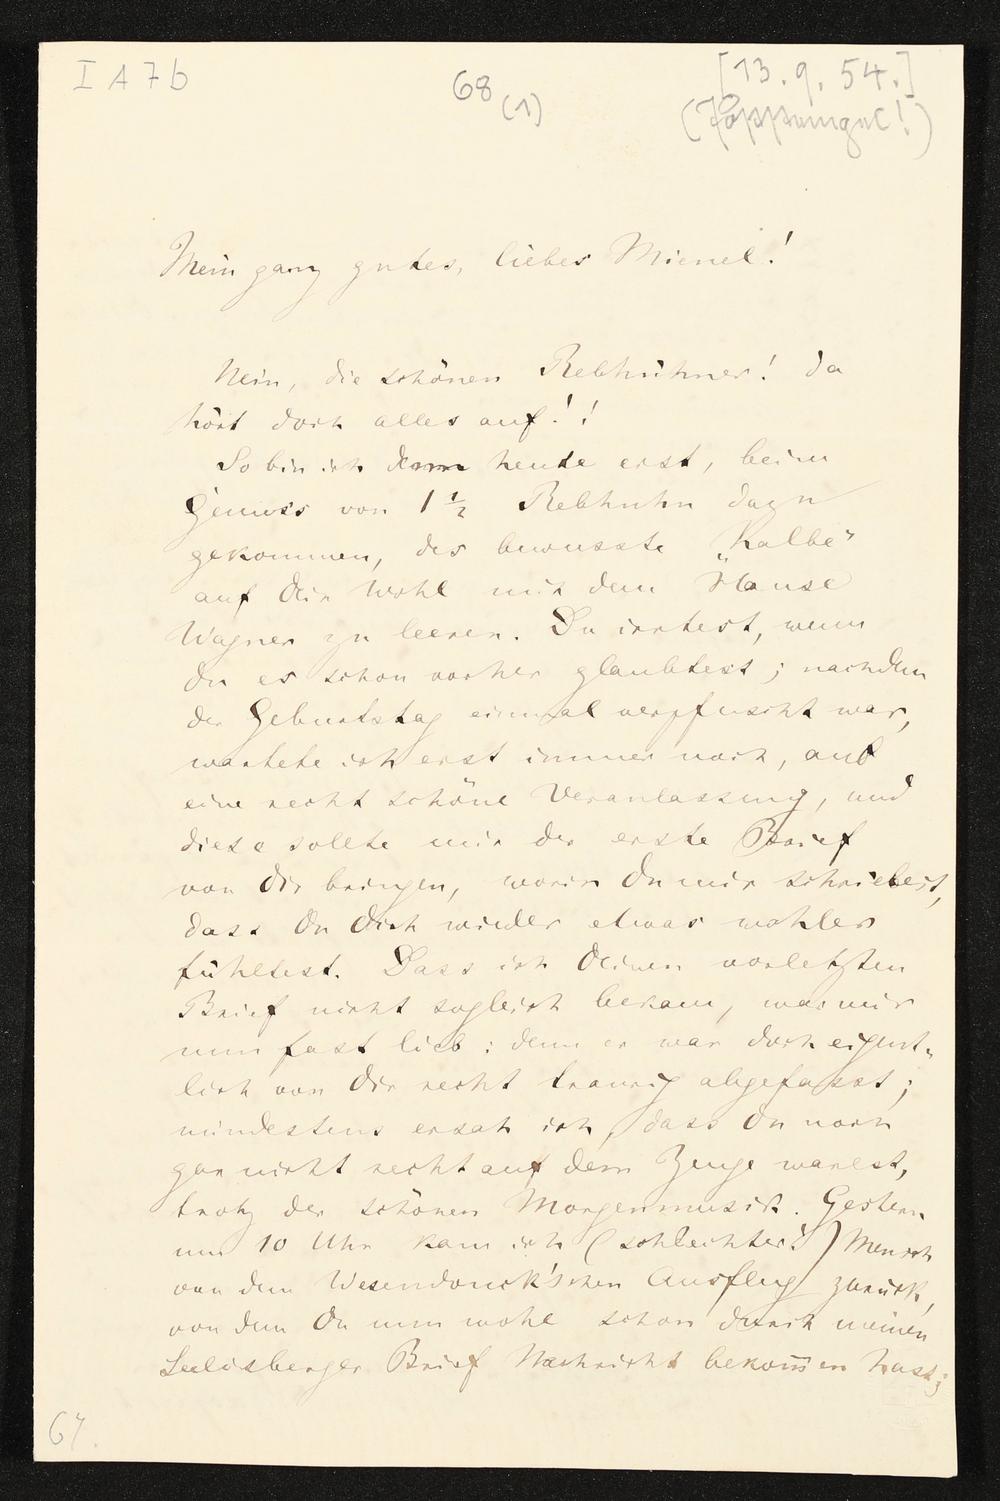 I A 7 b
68 (1)
[13. 9. 54.]
Mein ganz gutes, liebes Mienel!
Nein, die schönen Rebhühner! Da
hört doch alles auf!!
So bin ich denn heute erst, beim
Genuss von 1½ Rebhuhn dazu
gekommen, das bewusste „Kalbe"
auf Dein Wohl mit dem Hause
Wagner zu leeren. Du irrtest, wenn
Du es schon vorher glaubtest; nachdem
der Geburtstag einmal verpfuscht war,
wartete ich erst immer noch, auf
eine recht schöne Veranlassung, und
diese sollte mir der erste Brief
von Dir bringen, worin Du mir schriebest,
dass Du Dich wieder etwas wohler
fühltest. Dass ich Deinen vorletzten
Brief nicht sogleich bekam, war mir
nun fast lieb: denn er war doch eigent-
lich von Dir recht traurig abgefasst;
mindestens ersah ich, dass Du noch
gar nicht recht auf dem Zeuge warest,
trotz der schönen Morgenmusik. Gestern
um 10 Uhr kam ich (schlechter!) Mensch
von dem Wesendonck'schen Ausflug zurück,
von dem Du nun wohl schon durch meinen
Seelisberger Brief Nachricht bekommen hast;
67.